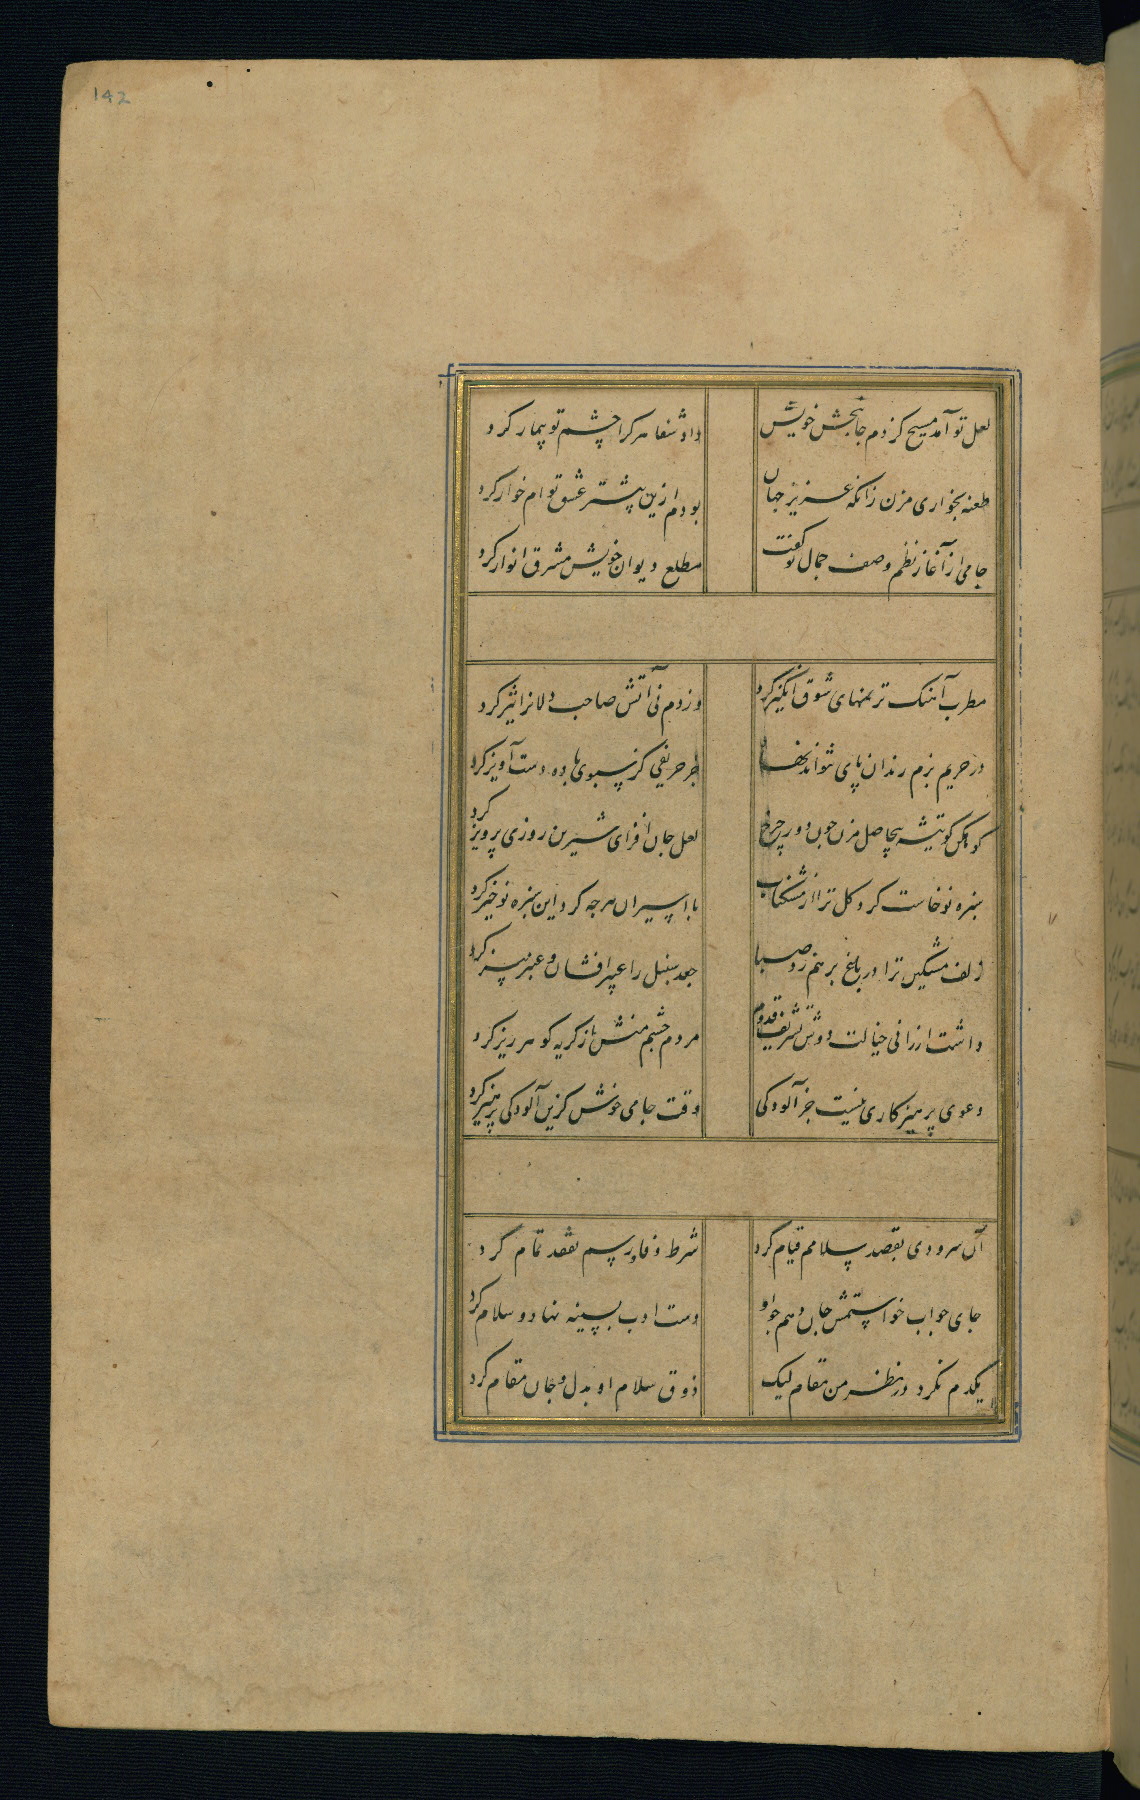 142
لعل تو آمد مسیح کز دم جانبخش خویش
داد شفا هر کرا چشم تو بیمار کرد
طعنه بخواری مزن زانکه عزیز جهان
بودم ازین پیشتر عشق توام خوار کرد
جامی از آغاز نظم وصف جمال تو گفت
مطلع دیوان خویش مشرق انوار کرد
مطرب آهنک ترنمهای شوق انگیز کرد
وز دم نی آتش صاحب دلانرا تیز کرد
در حریم بزم رندان پای نتواند نهاد
جز حریفی کز سبوی باده دست آویز کرد
کوهکن کو تیشه بیحاصل مزن چون دور چرخ
لعل جان افزای شیرین روزی پرویز کرد
سبزه نو خاست کرد کل ترا از مشکناب
با اسیران هرچه کرد این سبزه نوخیز کرد
زلف مشکین ترا در باغ برهم زد صبا
جعد سنبل را عبیر افشان و عنبر بیز کرد
داشت ارزانی خیالت دوش تشریف قدوم
مردم چشم منش از کریه کوهر ریز کرد
دعوی پرهیزکاری نیست جز آلودکی
وقت جامی خوش کزین آلودکی پرهیز کرد
آن سرو دی بقصد سلامم قیام کرد
شرط وفا و رسم تفقد تمام کرد
جای جواب خواستمش جان دهم جو او
دست ادب بسینه نهاد و سلام کرد
یکدم نکرد در نظر من مقام لیک
ذوق سلام او بدل و جان مقام کرد